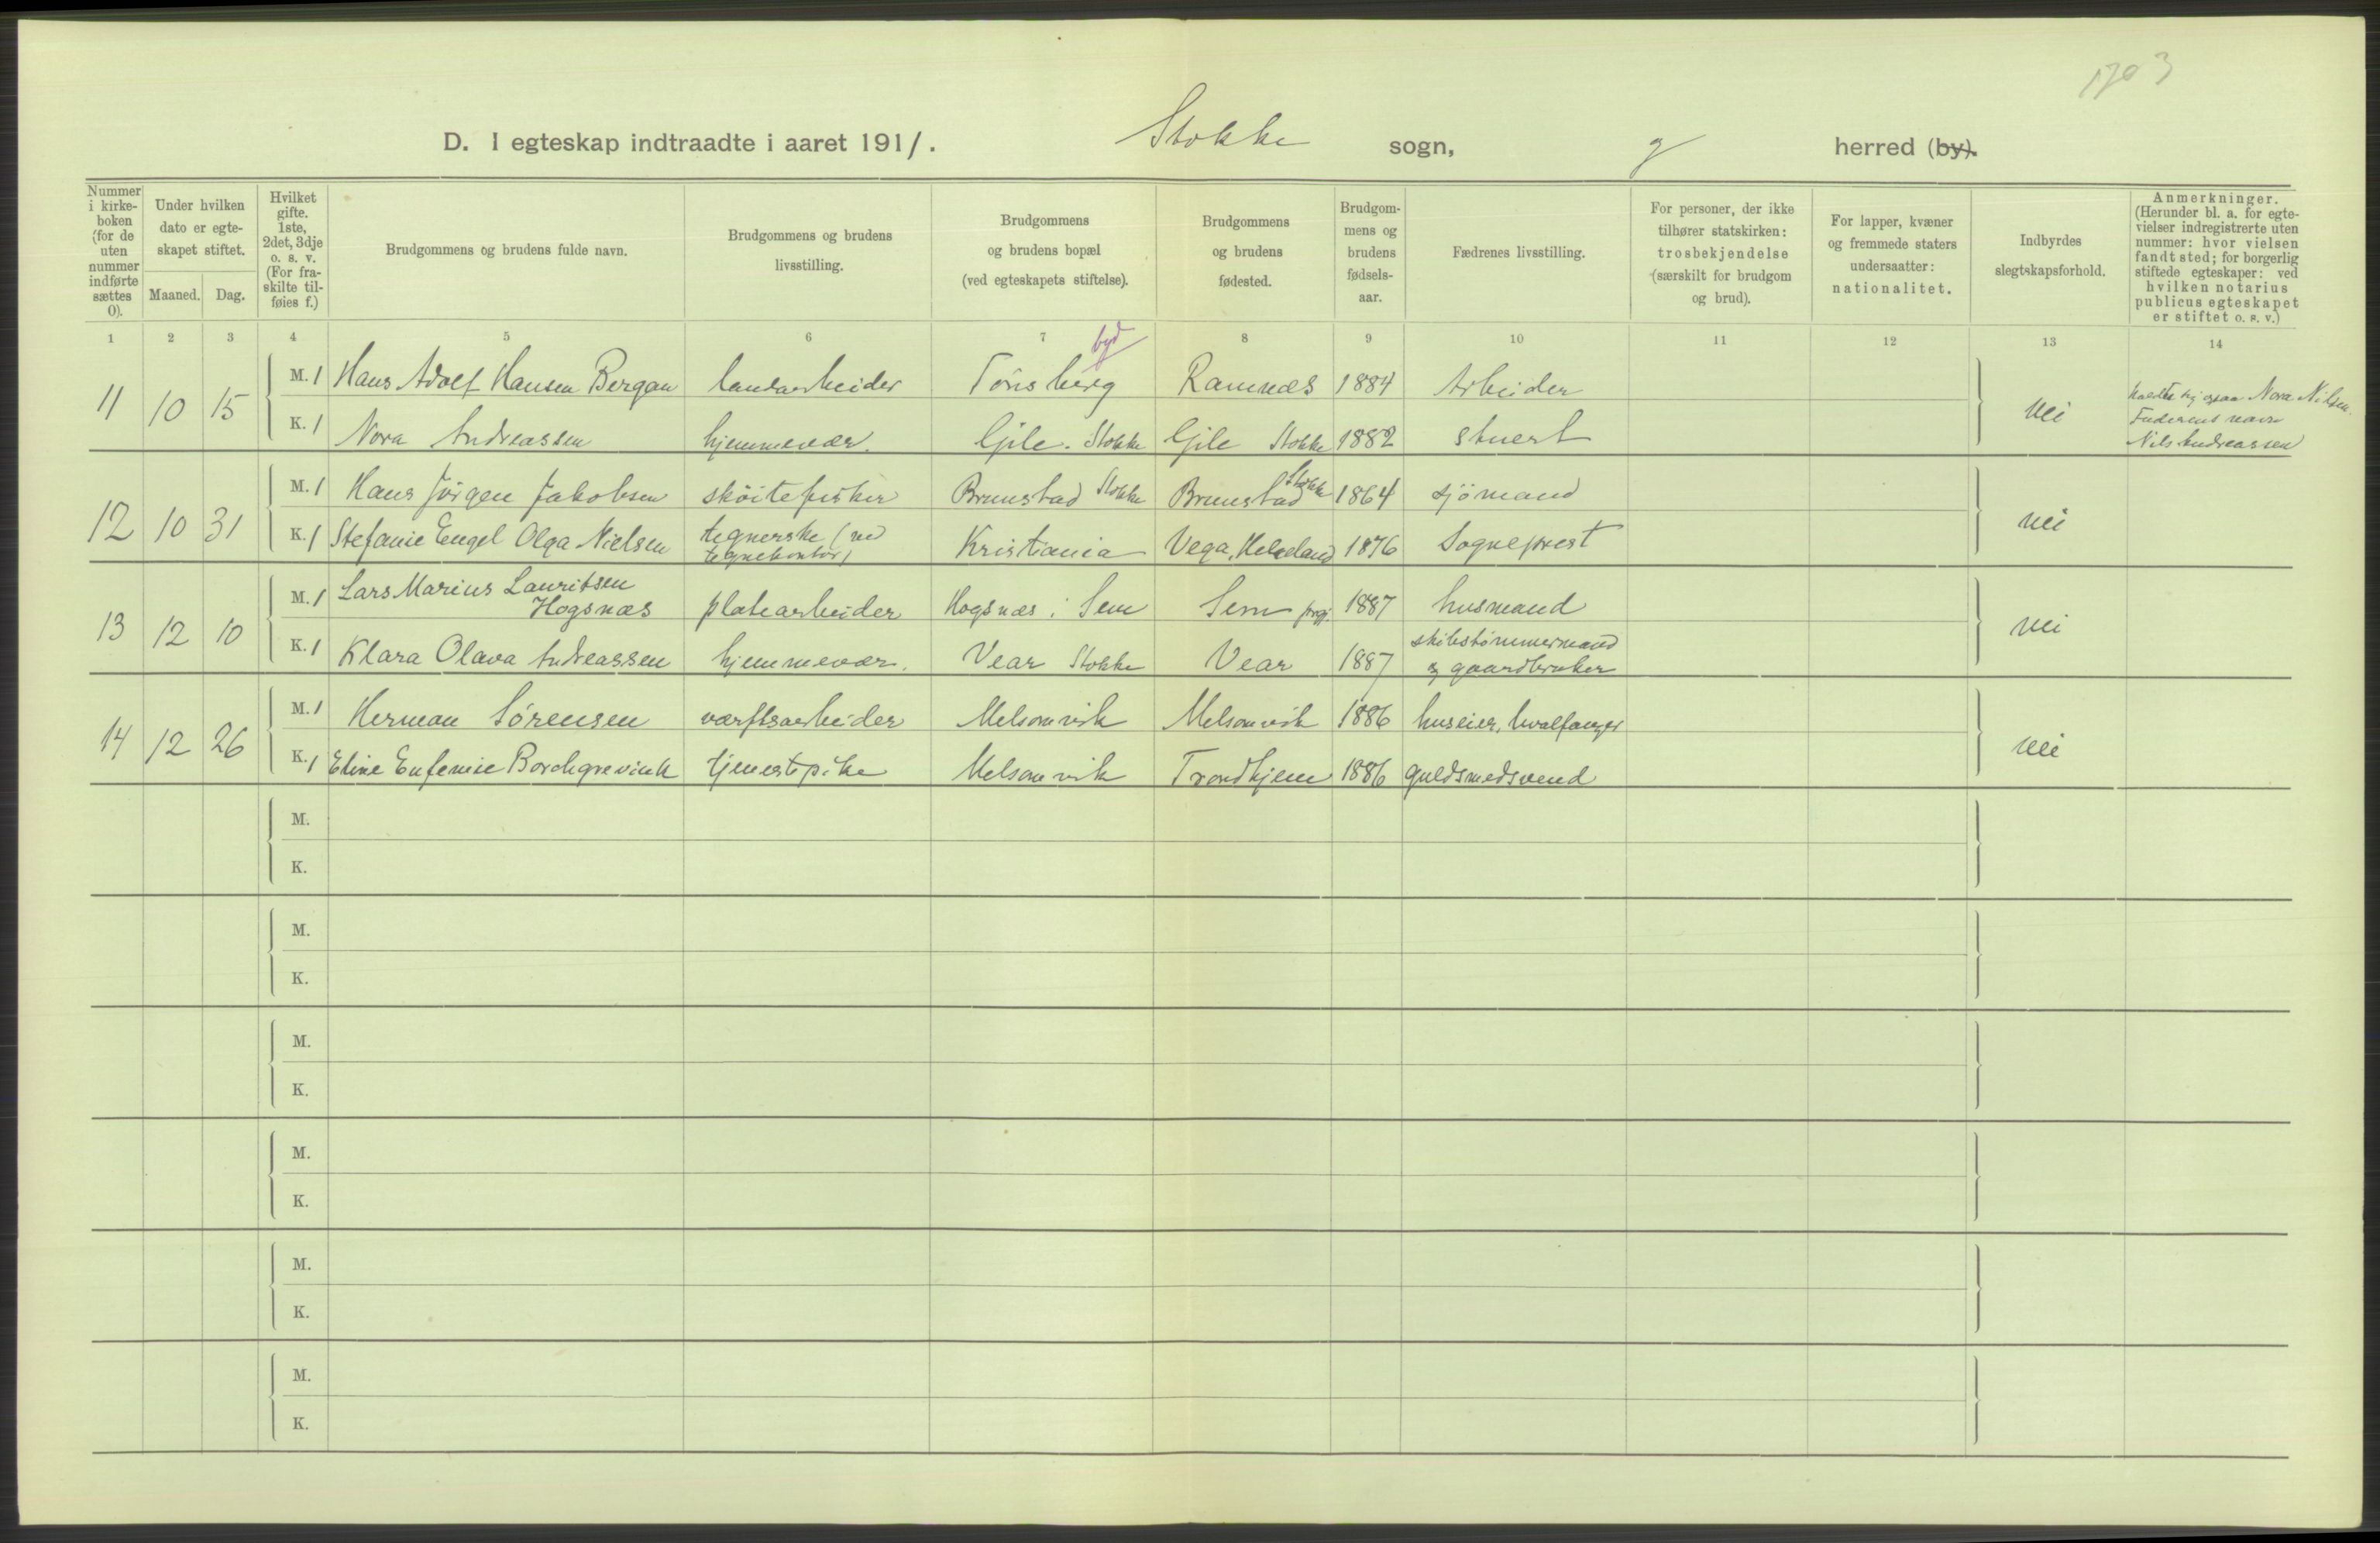 1703
D. I egteskap indtraadte i aaret 1911. Stokke sogn, herred (by).
Nummer i kirkeboken (for de uten nummer indførte sættes 0).
Under hvilken dato er egteskapet stiftet.
Maaned. Dag.
Hvilket gifte. 1ste, 2det, 3dje o. s. v. (For fraskilte tilføies f.)
Brudgommens og brudens fulde navn.
Brudgommens og brudens livsstilling.
Brudgommens og brudens bopæl (ved egteskapets stiftelse).
Brudgommens og brudens fødested.
Brudgommens og brudens fødselsaar.
Fædrenes livsstilling.
For personer, der ikke tilhører statskirken: trosbekjendelse (særskilt for brudgom og brud).
For lapper, kvæner og fremmede staters undersaatter: nationalitet.
Indbyrdes slegtskapsforhold.
Anmerkninger. (Herunder bl. a. for egtevielser indregistrerte uten nummer: hvor vielsen fandt sted; for borgerlig stiftede egteskaper: ved hvilken notarius publicus egteskapet er stiftet o. s. v.)
1 2 3 4 5 6 7 8 9 10 11 12 13 14
byd
11 10 15 M. 1 Hans Adolf Hansen Bergan landarbeider Tønsberg Ramnæs 1884 Arbeider nei
K. 1 Nora Andreassen hjemmevær. Gile. Stokke Gile Stokke 1882 stuert
kaldte sig ogsaa Nora Nilsen.
Faderens navn
Nils Andreassen
12 10 31 M. 1 Hans Jørgen Jakobsen skøitefisker Brunstad Stokke Brunstad Stokke 1864 sjømand nei
K. 1 Stefanie Engel Olga Nielsen tegnerske (ved tegnekontor) Kristiania Vega, Helgeland 1876 Sogneprest
13 12 10 M. 1 Lars Marius Lauritsen Hogsnæs platearbeider Hogsnæs i Sem Sem prgj. 1887 husmand nei
K. 1 Klara Olava Andreassen hjemmevær. Vear Stokke Vear 1887 skibstømmermand & gaardbruker
14 12 26 M. 1 Herman Sørensen værftsarbeider Melsomvik Melsomvik 1886 huseier, hvalfanger nei
K. 1 Eline Eufemie Borchgrevink tjenestepike Melsomvik Trondhjem 1886 guldsmedsvend
M.
K.
M.
K.
M.
K.
M.
K.
M.
K.
M.
K.